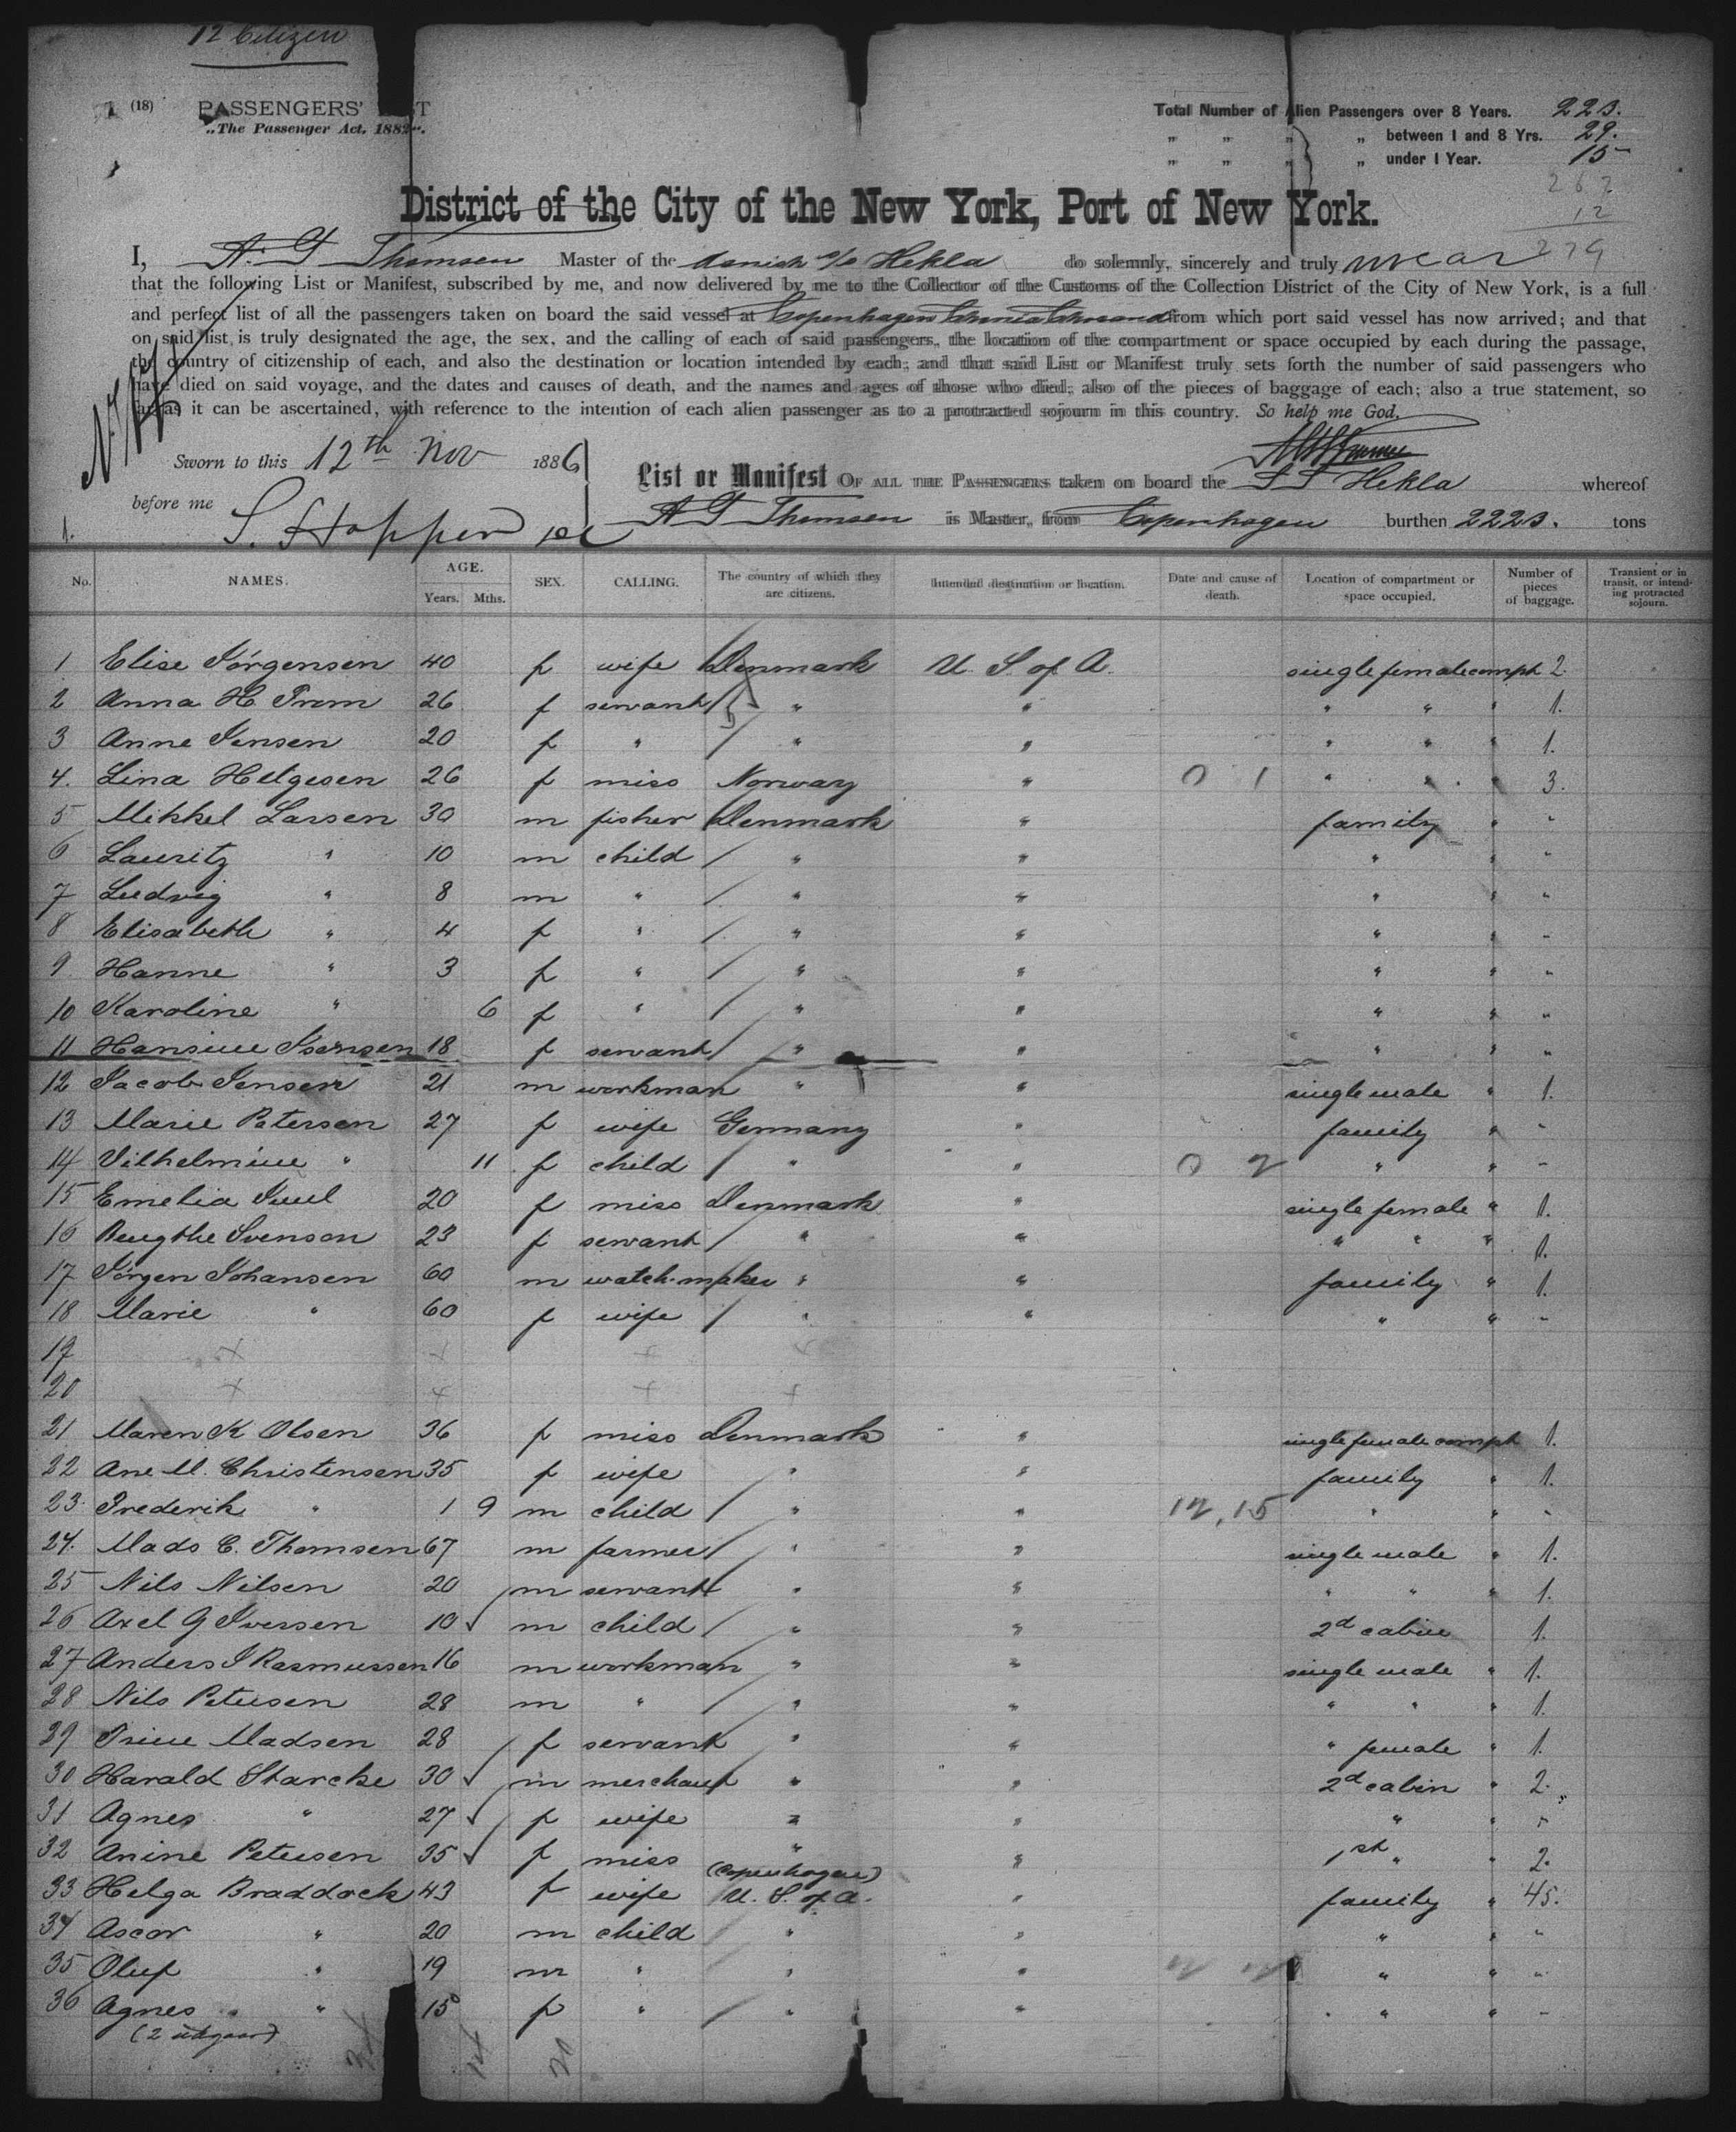 12 Citizen
(18) PASSENGERS' LIST
„The Passenger Act, 1882".
Total Number of Alien Passengers over 8 Years. 223.
„ „ „ „ between 1 and 8 Yrs. 29.
„ „ „ „ under 1 Year. 15
267
12
279
District of the City of the New York, Port of New York.
I, A. G Thomsen Master of the danish s/s Hekla do solemnly, sincerely and truly swear
that the following List or Manifest, subscribed by me, and now delivered by me to the Collector of the Customs of the Collection District of the City of New York, is a full
and perfect list of all the passengers taken on board the said vessel at Copenhagen from which port said vessel has now arrived; and that
on said list is truly designated the age, the sex, and the calling of each of said passengers, the location of the compartment or space occupied by each during the passage,
the country of citizenship of each, and also the destination or location intended by each; and that said List or Manifest truly sets forth the number of said passengers who
have died on said voyage, and the dates and causes of death, and the names and ages of those who died; also of the pieces of baggage of each; also a true statement, so
far as it can be ascertained, with reference to the intention of each alien passenger as to a protracted sojourn in this country. So help me God.
Sworn to this 12th Nov 1886
before me S. Hopper
List or Manifest OF ALL THE PASSENGERS taken on board the S S Hekla whereof
A G Thomsen is Master, from Copenhagen burthen 2223. tons
1.
No. NAMES. AGE. Years. Mths. SEX. CALLING. The country of which they are citizens. Intended destination or location. Date and cause of death. Location of compartment or space occupied. Number of pieces of baggage. Transient or in transit, or intending protracted sojourn.
1 Elise Jörgensen 40 f wife Denmark U. S. of A. single female compt 2.
2 Anna H Prom 26 f servant " " " " " 1.
3 Anne Jensen 20 f " " " " " " 1.
4. Lina Helgesen 26 f miss Norway " 0 1 " " " 3.
5 Mikkel Larsen 30 m fisher Denmark " family " "
6 Lauritz " 10 m child " " " " "
7 Ludvig " 8 m " " " " " "
8 Elisabeth " 4 f " " " " " "
9 Hanne " 3 f " " " " " "
10 Karoline " 6 f " " " " " "
11 Hansine 18 f servant " " " " "
12 Jacob Jensen 21 m workman " " single male " 1.
13 Marie Petersen 27 f wife Germany " family " "
14 Vilhelmine " 11 f child " " 0 2 " " "
15 Emelia Juul 20 f miss Denmark " single female " 1.
16 Bengthe Svenson 23 f servant " " " " " 1.
17 Jörgen Johansen 60 m watch-maker " " family " 1.
18 Marie " 60 f wife " " " " "
19 x x x x
20 x x x x
21 Maren K Olsen 36 f miss Denmark " single female compt 1.
22 Ane M. Christensen 35 f wife " " family " 1.
23. Frederik " 1 9 m child " " 12, 15 " " "
24. Mads C. Thomsen 67 m farmer " " single male " 1.
25 Nils Nilsen 20 m servant " " " " " 1.
26 Axel G Iversen 10 m child " " 2d cabin 1.
27 Anders J Rasmussen 16 m workman " " single male " 1.
28 Nils Petersen 28 m " " " " " " 1.
29 Trine Madsen 28 f servant " " " female " 1.
30 Harald Starcke 30 m merchant " " 2d cabin " 2.
31 Agnes " 27 f wife " " " " "
32 Anine Petersen 35 f miss " " 1st " " 2.
33 Helga Braddock 43 f wife (Copenhagen) U. S. of A. " family " 45.
34 Ascar " 20 m child " " " " "
35 Oluf " 19 m " " " " " "
36 Agnes " 15 f " " " " " "
(2 udgaar)